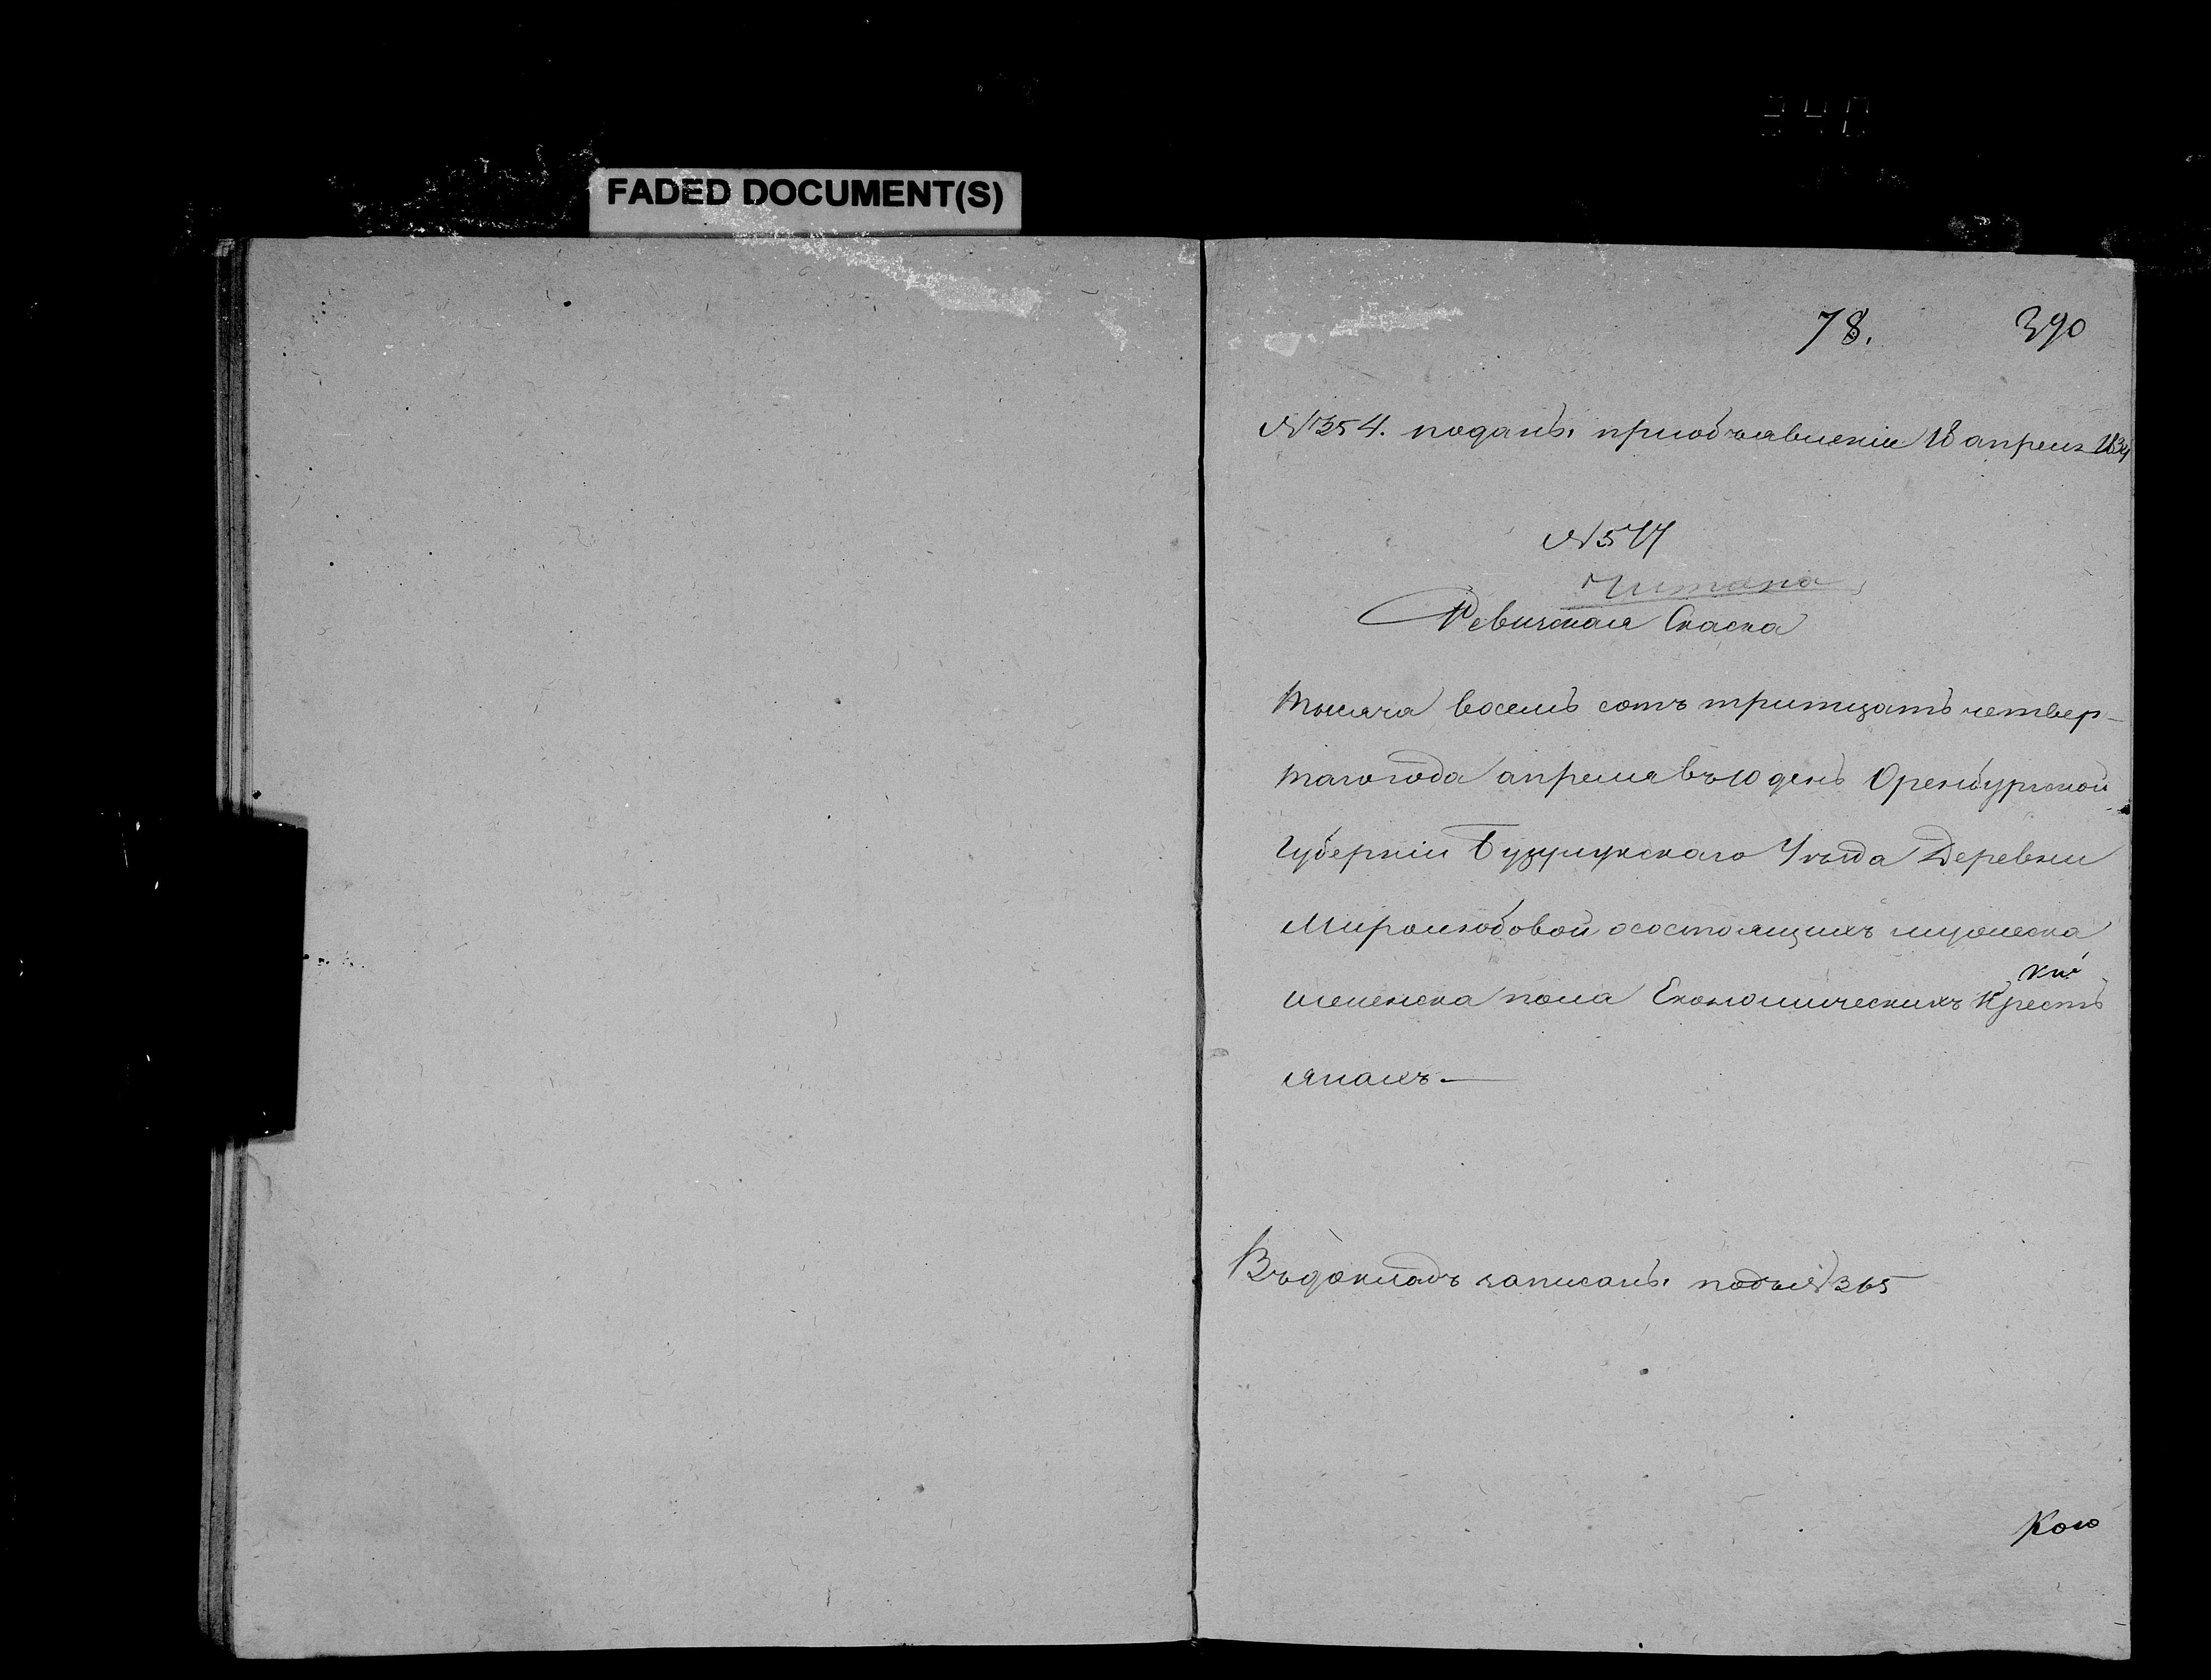 FADED DOCUMENT(S)
78. 390
№ 354. поданъ приобъявленіи 18 апреля 1834
№ 577
Читана
Ревизская Скаска
тысяча восемь сотъ тритцать четвер-
таго года апреля въ 10 день Оренбургской
Губерніи Бузулукскаго Уѣзда Деревни
Миролюбовой о состоящихъ мужеска
и женска пола Економическихъ Кресть
янахъ. —
Въ докладъ записанъ подъ № 365
Кою